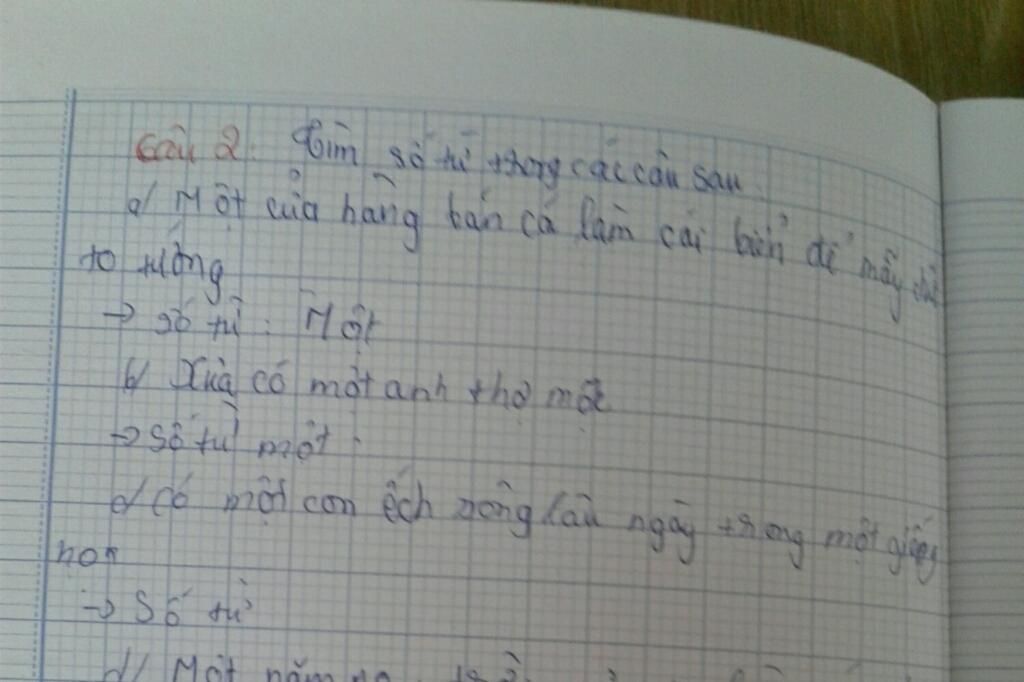 Câu 2: Tìm số từ trong các câu sau
a/ Một cửa hàng bán cá làm cái biển đề mấy chữ
to tướng
→ số từ : Một
b/ Xưa có một anh thợ mộc
→ Số từ một.
c/ Có một con ếch sống lâu ngày trong một giếng
nọ
→ Số từ
d/ Một năm nọ